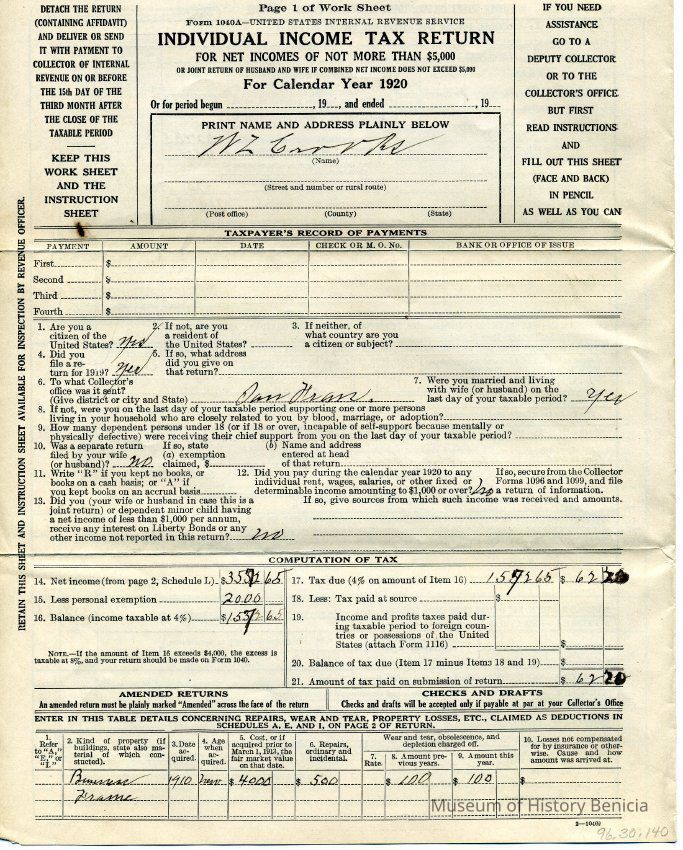 DETACH THE RETURN
(CONTAINING AFFIDAVIT)
AND DELIVER OR SEND
IT WITH PAYMENT TO
COLLECTOR OF INTERNAL
REVENUE ON OR BEFORE
THE 15th DAY OF THE
THIRD MONTH AFTER
THE CLOSE OF THE
TAXABLE PERIOD
KEEP THIS
WORK SHEET
AND THE
INSTRUCTION
SHEET
Page 1 of Work Sheet
Form 1040A—UNITED STATES INTERNAL REVENUE SERVICE
INDIVIDUAL INCOME TAX RETURN
FOR NET INCOMES OF NOT MORE THAN $5,000
OR JOINT RETURN OF HUSBAND AND WIFE IF COMBINED NET INCOME DOES NOT EXCEED $5,000
For Calendar Year 1920
Or for period begun , 19 , and ended , 19
PRINT NAME AND ADDRESS PLAINLY BELOW
(Name)
(Street and number or rural route)
(Post office) (County) (State)
IF YOU NEED
ASSISTANCE
GO TO A
DEPUTY COLLECTOR
OR TO THE
COLLECTOR'S OFFICE
BUT FIRST
READ INSTRUCTIONS
AND
FILL OUT THIS SHEET
(FACE AND BACK)
IN PENCIL
AS WELL AS YOU CAN
RETAIN THIS SHEET AND INSTRUCTION SHEET AVAILABLE FOR INSPECTION BY REVENUE OFFICER.
TAXPAYER'S RECORD OF PAYMENTS
PAYMENT AMOUNT DATE CHECK OR M. O. No. BANK OR OFFICE OF ISSUE
First $
Second $
Third $
Fourth $
1. Are you a citizen of the United States? Yes
2. If not, are you a resident of the United States?
3. If neither, of what country are you a citizen or subject?
4. Did you file a return for 1919? Yes
5. If so, what address did you give on that return?
6. To what Collector's office was it sent? (Give district or city and State) San Fran.
7. Were you married and living with wife (or husband) on the last day of your taxable period? Yes
8. If not, were you on the last day of your taxable period supporting one or more persons
living in your household who are closely related to you by blood, marriage, or adoption?
9. How many dependent persons under 18 (or if 18 or over, incapable of self-support because mentally or
physically defective) were receiving their chief support from you on the last day of your taxable period?
10. Was a separate return filed by your wife (or husband)? no
If so, state (a) exemption claimed, $
(b) Name and address entered at head of that return.
11. Write "R" if you kept no books, or books on a cash basis; or "A" if you kept books on an accrual basis
12. Did you pay during the calendar year 1920 to any individual rent, wages, salaries, or other fixed or determinable income amounting to $1,000 or over? No
If so, secure from the Collector Forms 1096 and 1099, and file a return of information.
13. Did you (your wife or husband in case this is a joint return) or dependent minor child having a net income of less than $1,000 per annum, receive any interest on Liberty Bonds or any other income not reported in this return? no
If so, give sources from which such income was received and amounts.
COMPUTATION OF TAX
14. Net income (from page 2, Schedule L) $ 65
15. Less personal exemption 2000
16. Balance (income taxable at 4%) $ 65
NOTE.—If the amount of Item 16 exceeds $4,000, the excess is
taxable at 8%, and your return should be made on Form 1040.
17. Tax due (4% on amount of Item 16) 65 $ 62
18. Less: Tax paid at source $
19. Income and profits taxes paid during taxable period to foreign countries or possessions of the United States (attach Form 1116) $
20. Balance of tax due (Item 17 minus Items 18 and 19) $
21. Amount of tax paid on submission of return $ 62 20
AMENDED RETURNS
An amended return must be plainly marked "Amended" across the face of the return
CHECKS AND DRAFTS
Checks and drafts will be accepted only if payable at par at your Collector's Office
ENTER IN THIS TABLE DETAILS CONCERNING REPAIRS, WEAR AND TEAR, PROPERTY LOSSES, ETC., CLAIMED AS DEDUCTIONS IN
SCHEDULES A, E, AND I, ON PAGE 2 OF RETURN.
1. Refer to "A," "E," or "I."
2. Kind of property (if buildings, state also material of which constructed).
3. Date acquired.
4. Age when acquired.
5. Cost, or if acquired prior to March 1, 1913, the fair market value on that date.
6. Repairs, ordinary and incidental.
Wear and tear, obsolescence, and depletion charged off.
7. Rate.
8. Amount previous years.
9. Amount this year.
10. Losses not compensated for by insurance or otherwise. Cause and how amount was arrived at.
1910 new $ 4000 $ 500 $ 100 $ 100 $
Frame
2—10409
Museum of History Benicia
96.30.140